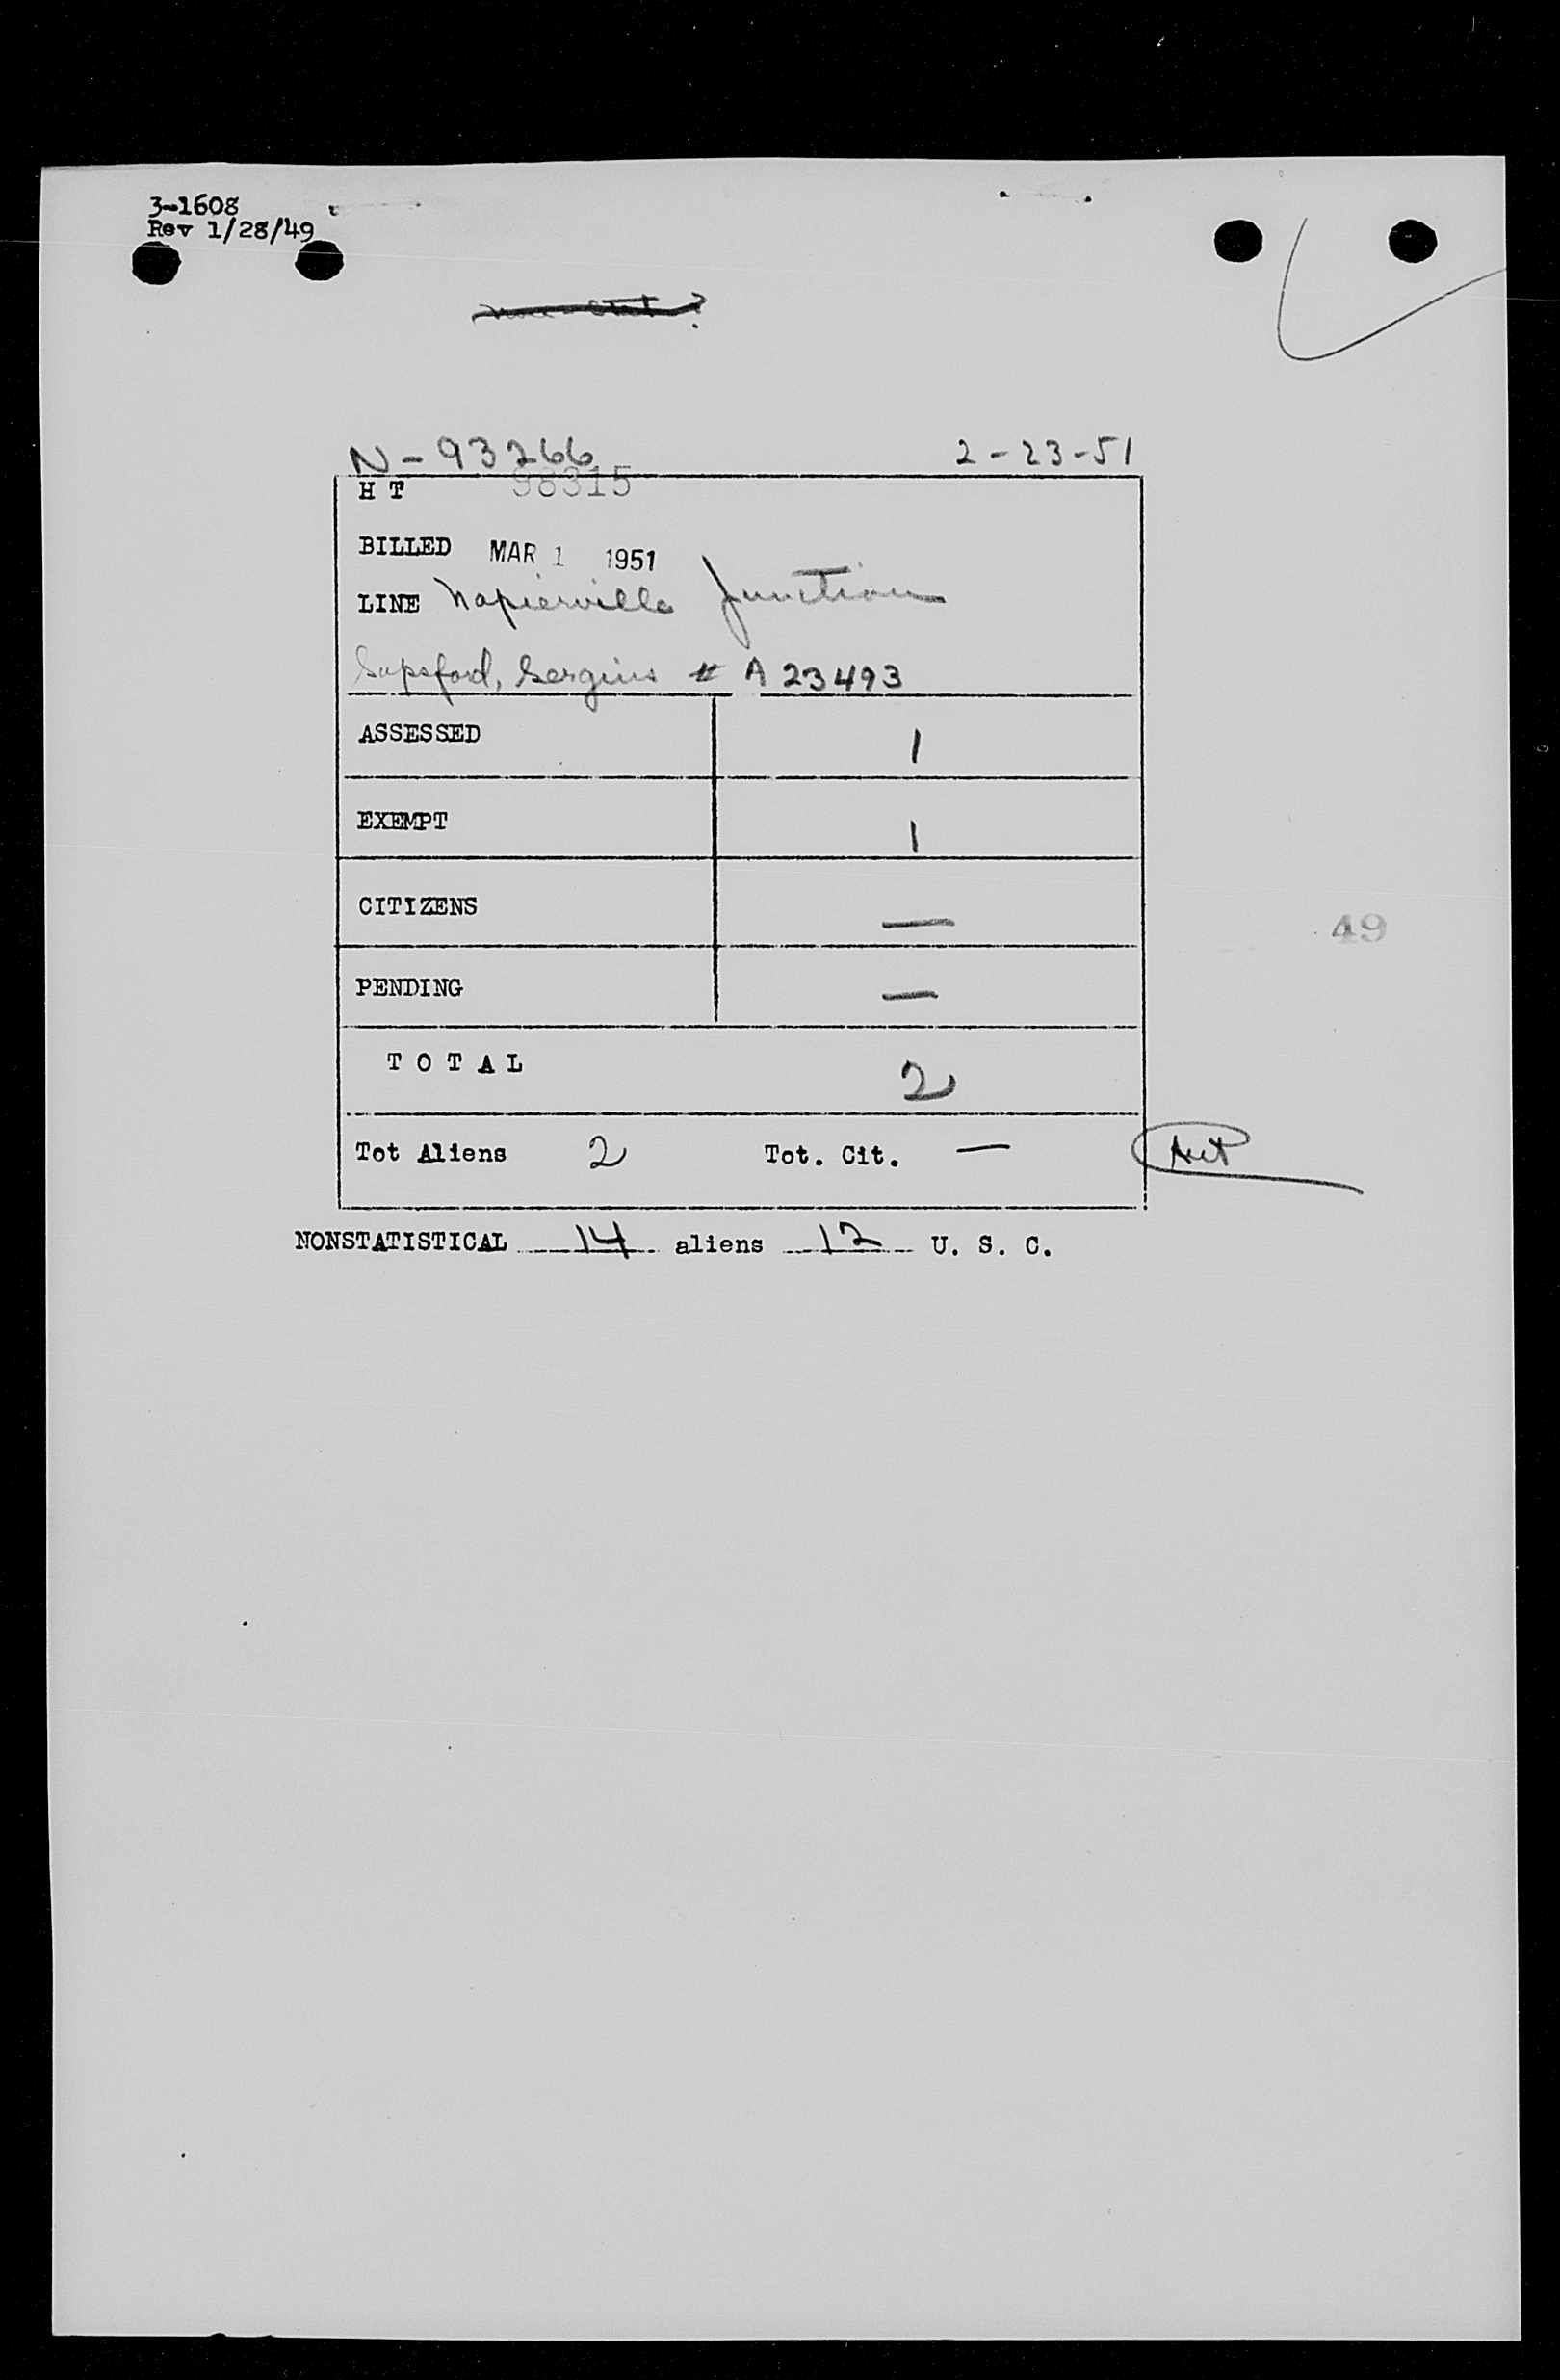 3-1608
Rev 1/28/49
N-93266 2-23-51
H T 98315
BILLED MAR 1 1951
LINE Napierville Junction
Sapsford, Sergius # A 23493
ASSESSED 1
EXEMPT 1
CITIZENS —
49
PENDING —
T O T A L 2
Tot Aliens 2 Tot. Cit. —
NONSTATISTICAL 14 aliens 12 U. S. C.